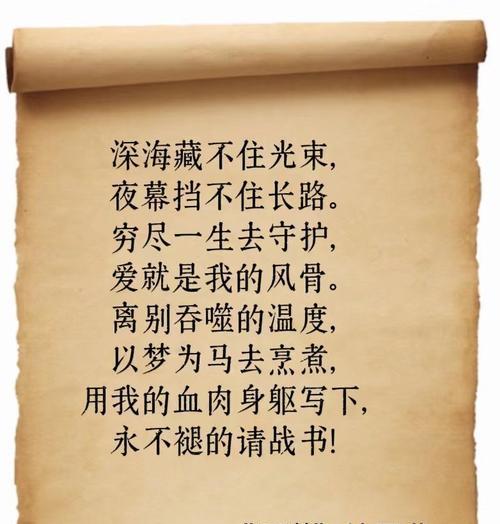 深海藏不住光束,
夜幕挡不住长路。
穷尽一生去守护,
爱就是我的风骨。
离别吞噬的温度,
以梦为马去烹煮,
用我的血肉身躯写下,
永不褪的请战书!